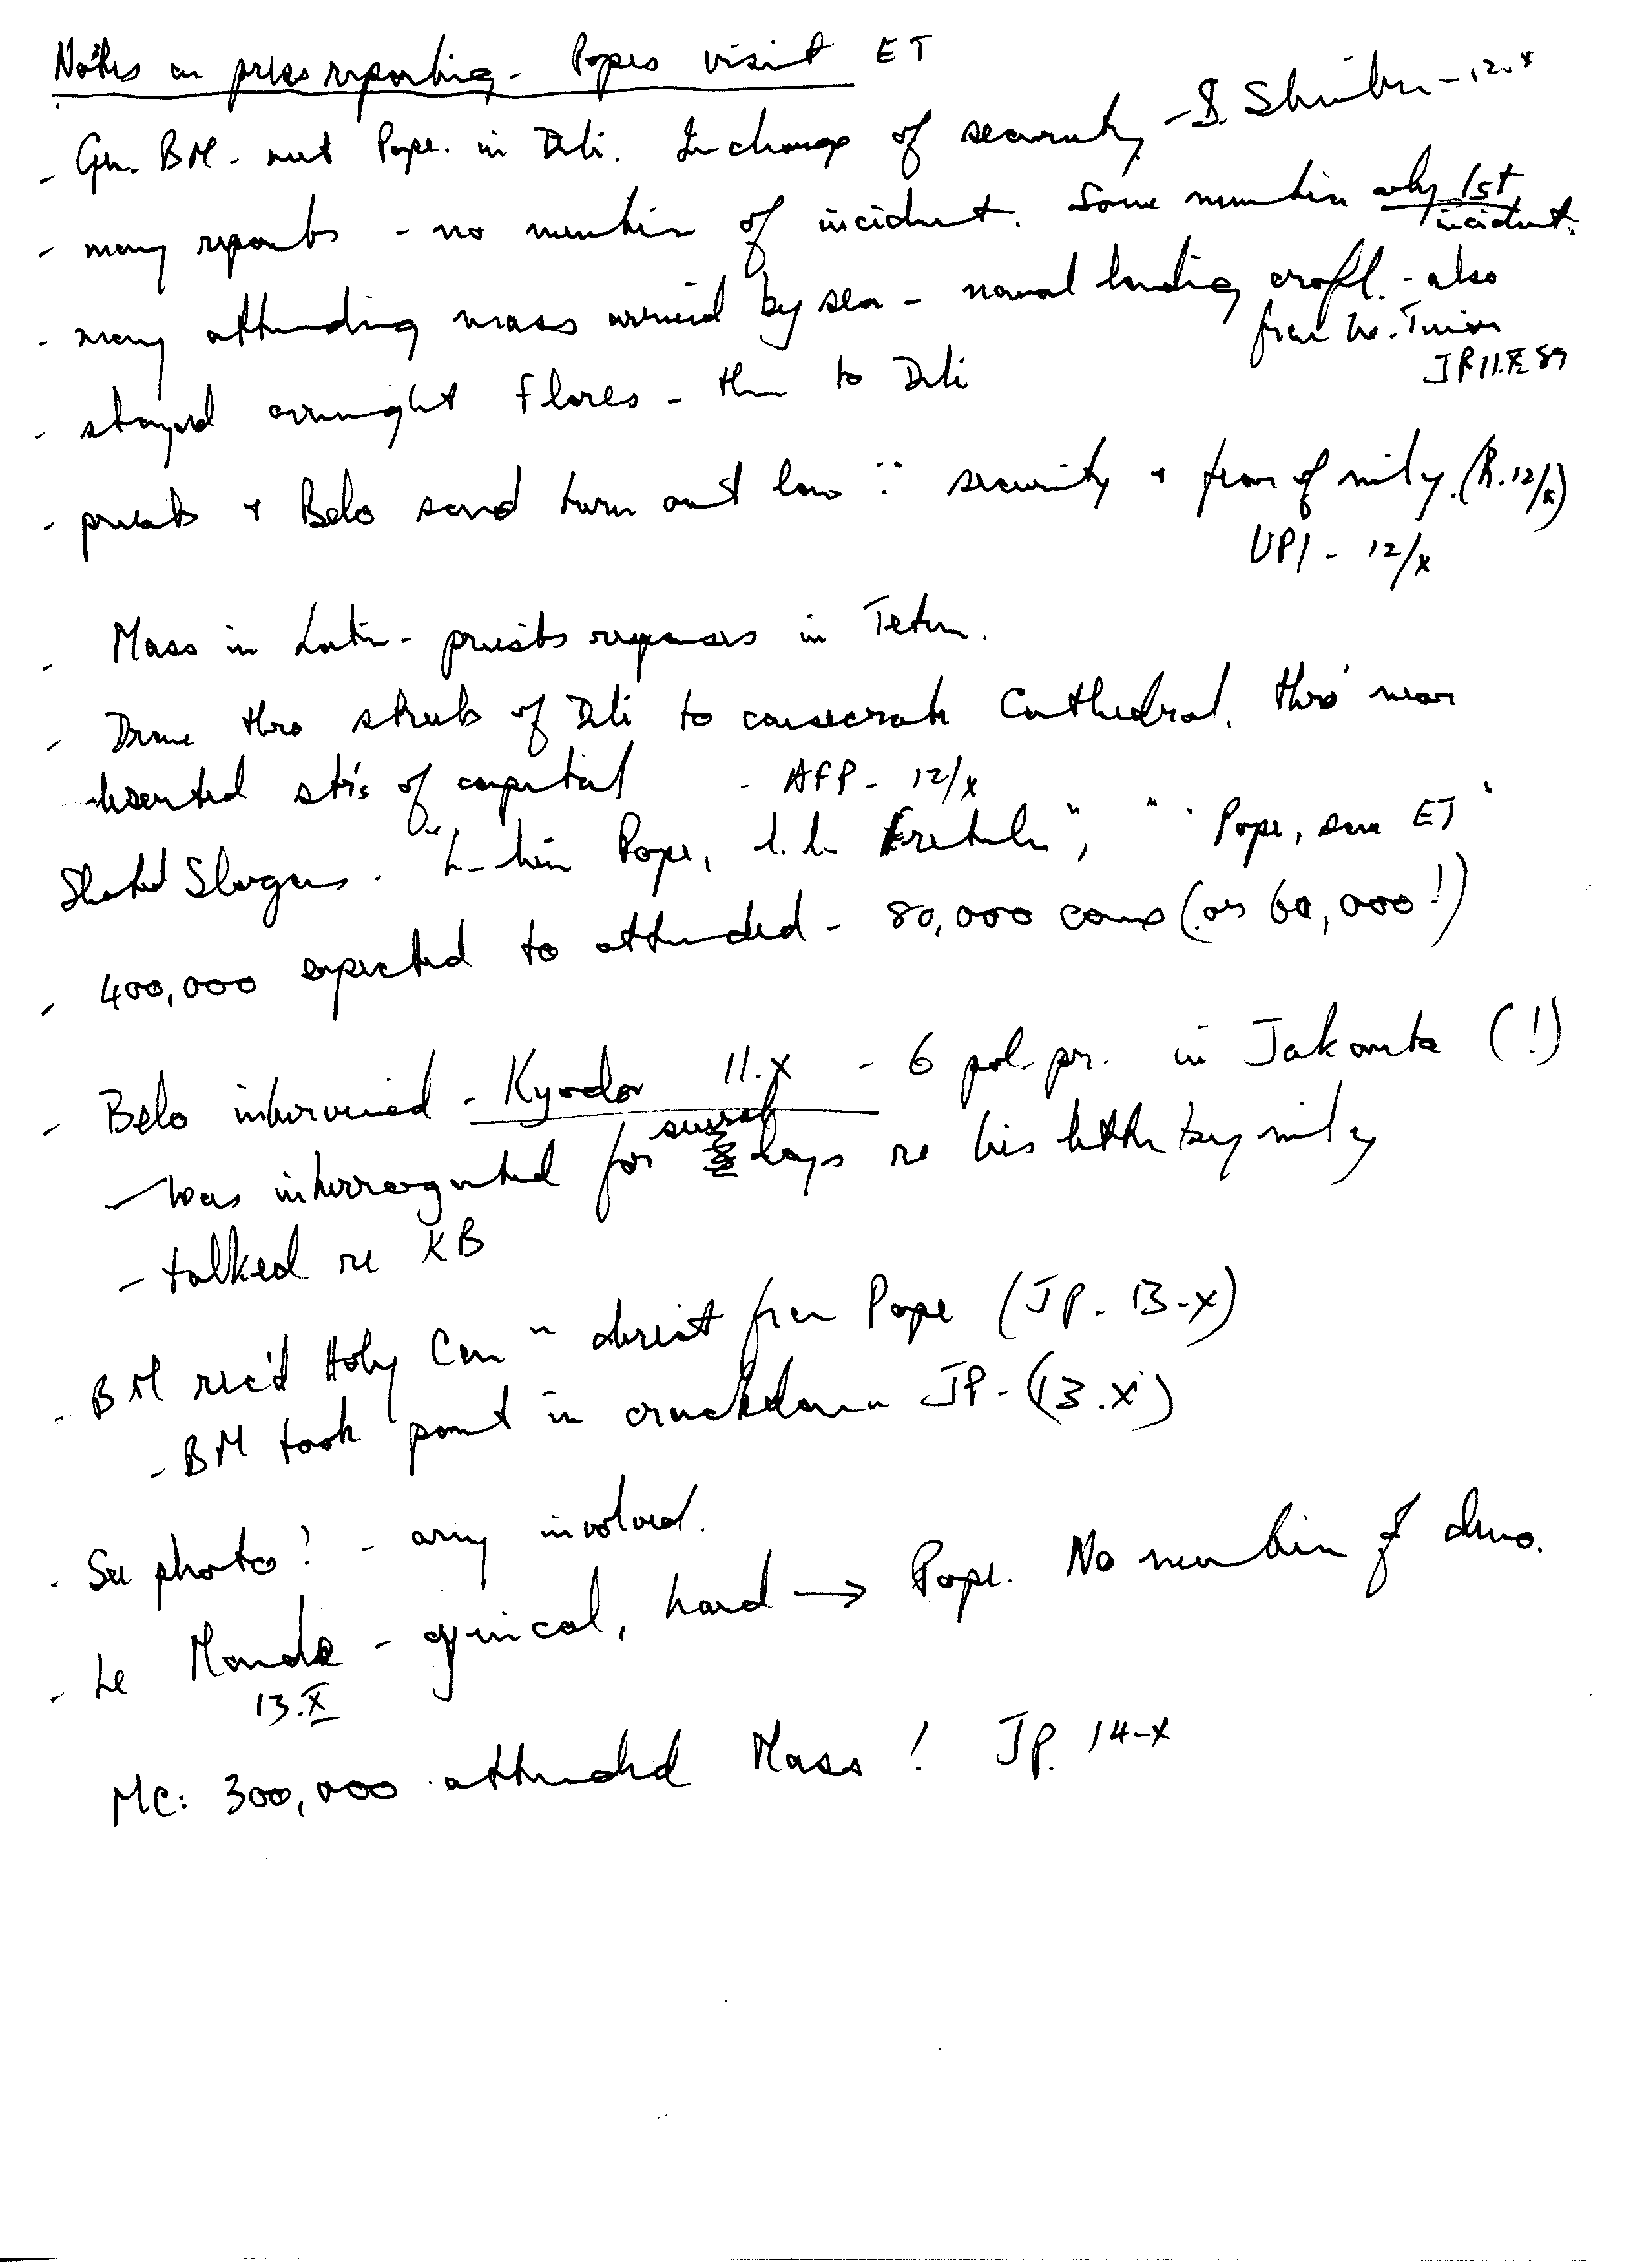 Notes on press reporting - Popes visit ET
- Gen. BM - met Pope. in Dili. In charge of security - S. 12.x
- many reports - no mention of incident. Some mention only 1st incident.
- many attending mass arrived by sea - naval landing craft. - also
from W. Timor
JP 11.X 89
- stayed overnight Flores - then to Dili
- priests + Belo said turn out low ∵ security + fear of mil'y. (R. 12/x)
UPI - 12/x
- Mass in Latin - priests responses in Tetum.
- Drove thro streets of Dili to consecrate Cathedral. thro' near
deserted str's of capital - AFP - 12/x
Shouted Slogans. Pope, Fretilin", " "Pope, save ET"
- 400,000 expected to attended - 80,000 came (or 60,000!)
- Belo interviewed - Kyodo 11.x - 6 pol. pr. in Jakarta (!)
- was interrogated for several days re his letter by mil'y
- talked re KB
- BM rec'd Holy Com " direct from Pope (JP - 13-x)
- BM took part in crackdown JP - (13.x)
- See photo! - army involved.
- Le Monde - cynical, hard → Pope. No mention of demo.
13.X
MC: 300,000 attended Mass! JP. 14-x